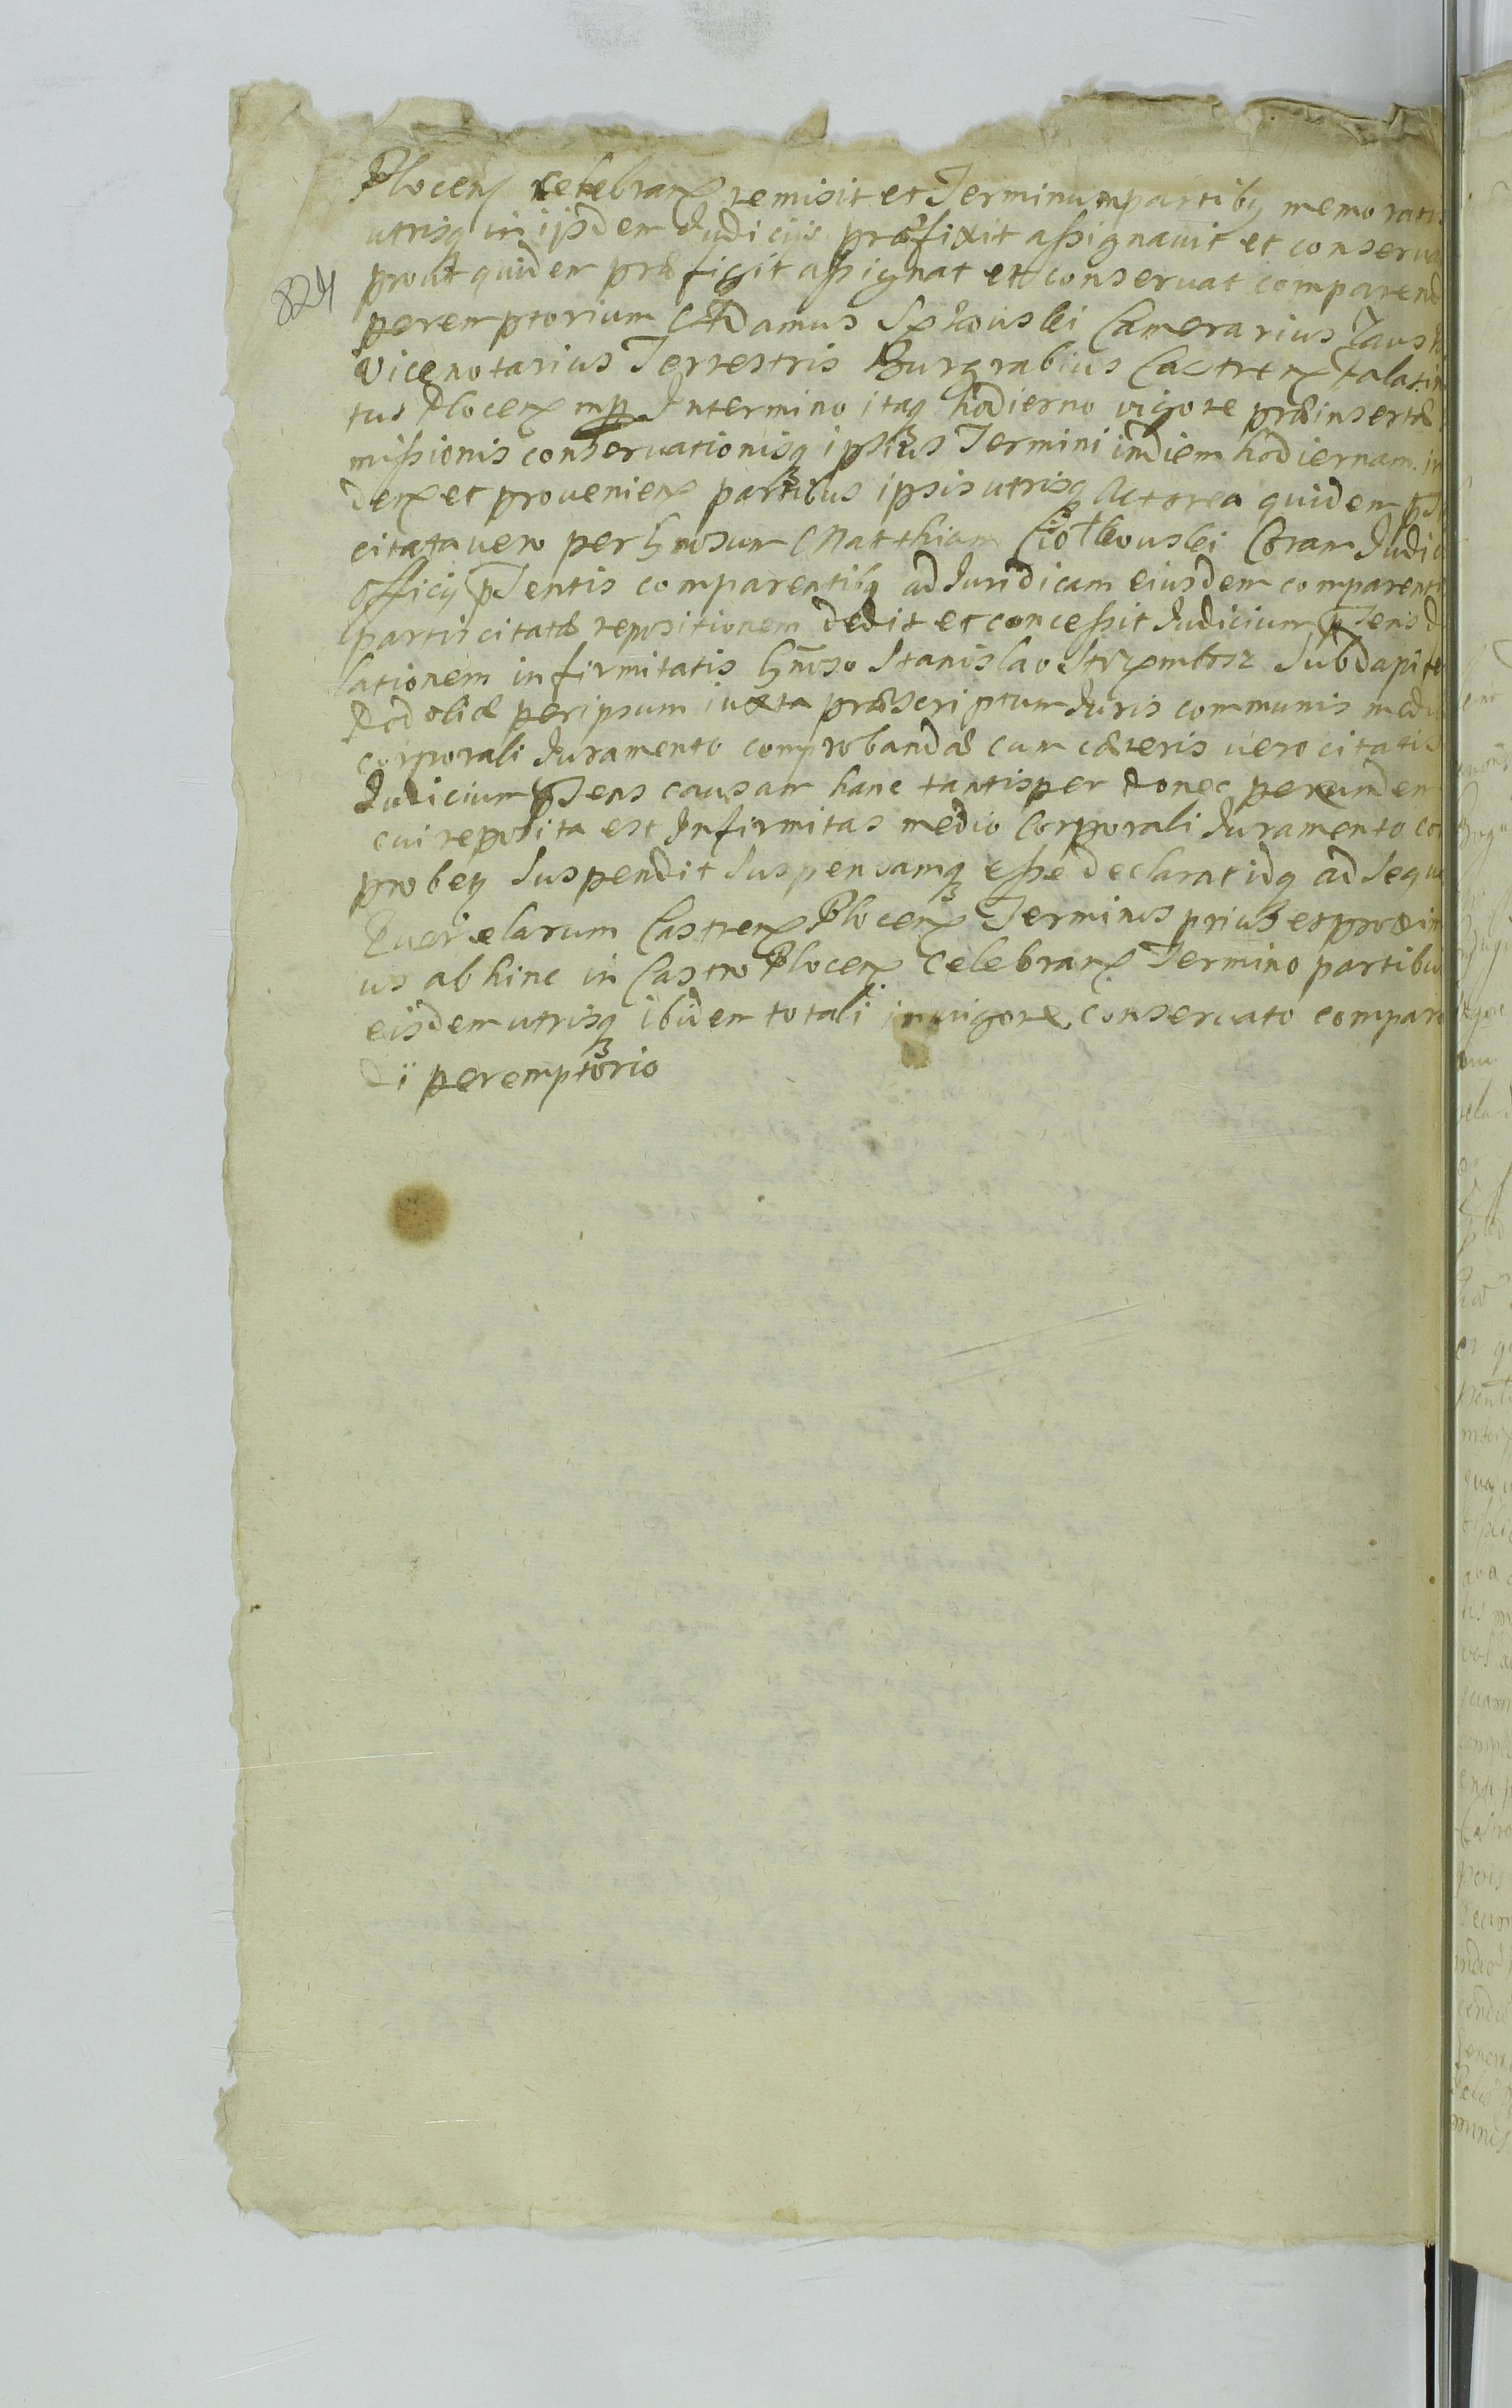 Plocen celebran remisit et Terminum partibq memorati
utrisq in ijsdem Judicijs præfixit assignavit et conserva
824
prout quidem præfigit assignat et conservat comparend
peremptorium Adamus Camerarius
Vicenotarius Terrestris Burgrabius Castren Palatin
tus Plocen mpp In termino itaq hodierno vigore præinsertæ
missionis conservationisq ipsius Termini in diem hodiernam in
den et provenien partibus ipsis utrisq Actorea quidem
citata vero per Gnosum Matthiam Ciołkowski Coram Judi
Officij pntis comparentibq ad Juridicam eiusdem comparent
partis citatæ repositionem dedit et concessit Judicium pns d
lationem infirmitatis Gnoso Stanislao Strzembosz Subdapife
Podoliæ per ipsum iuxta præscriptum Juris communis medi
corporali Juramento comprobandæ cum cæteris vero citatis
Judicium pns causam hanc tantisper donec per eundem
cui reposita est Infirmitas medio Corporali Juramento co
probetq suspendit suspensamq esse declarat idq ad seque
Querelarum Castren Plocen Terminus prius et proxim
us ab hinc in Castro Plocen Celebran Termino partibu
eisdem utrisq ibidem totali in vigore conservato compare
di peremptorio